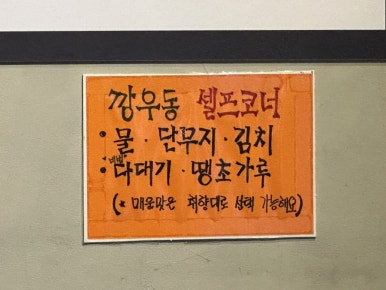 깡우동 셀프코너
• 물 · 단무지 · 김치
• 다대기 · 땡초가루
(* 매운맛은 취향대로 선택 가능해요)